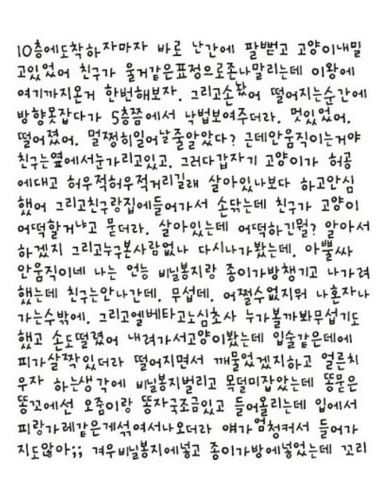 10층에도착하자마자 바로 난간에 팔뻗고 고양이내밀
고있었어 친구가 울거같은표정으로존나말리는데 이왕에
여기까지온거 한번해보자. 그리고손놨어 떨어지는순간에
방향못잡다가 5층쯤에서 낙법보여주더라. 멋있었어.
떨어졌어. 멀쩡히일어날줄알았다? 근데안움직이는거야
친구는옆에서눈가리고있고. 그러다갑자기 고양이가 허공
에대고 허우적허우적거리길래 살아있나보다 하고안심
했어 그리고친구랑집에들어가서 손닦는데 친구가 고양이
어떡할거냐고 묻더라. 살아있는데 어떡하긴뭘? 알아서
하겠지 그리고누구본사람없나 다시나가봤는데. 아뿔싸
안움직이네 나는 언능 비닐봉지랑 종이가방챙기고 나가려
했는데 친구는안나간데. 무섭데. 어쩔수없지뭐 나혼자나
가는수밖에. 그리고엘베타고노심초사 누가볼까봐무섭기도
했고 손도떨렸어 내려가서고양이봤는데 입술같은데에
피가살짝있더라 떨어지면서 깨물었겠지하고 얼른치
우자 하는생각에 비닐봉지벌리고 목덜미잡았는데 똥문은
똥꼬에선 오줌이랑 똥자국조금있고 들어올리는데 입에서
피랑가레같은게섞여서나오더라 얘가엄청커서 들어가
지도않아;; 겨우비닐봉지에넣고 종이가방에넣었는데 꼬리